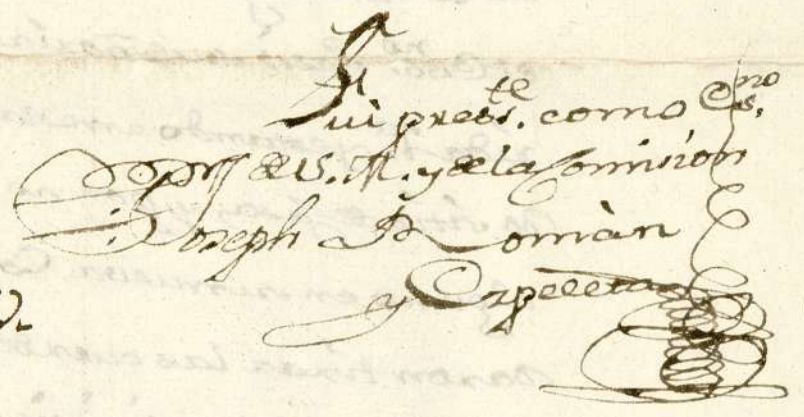 Fui pres.te como Es.no
Opp.r de S. M. y de la Comision
Joseph Román
y Ezpeleta